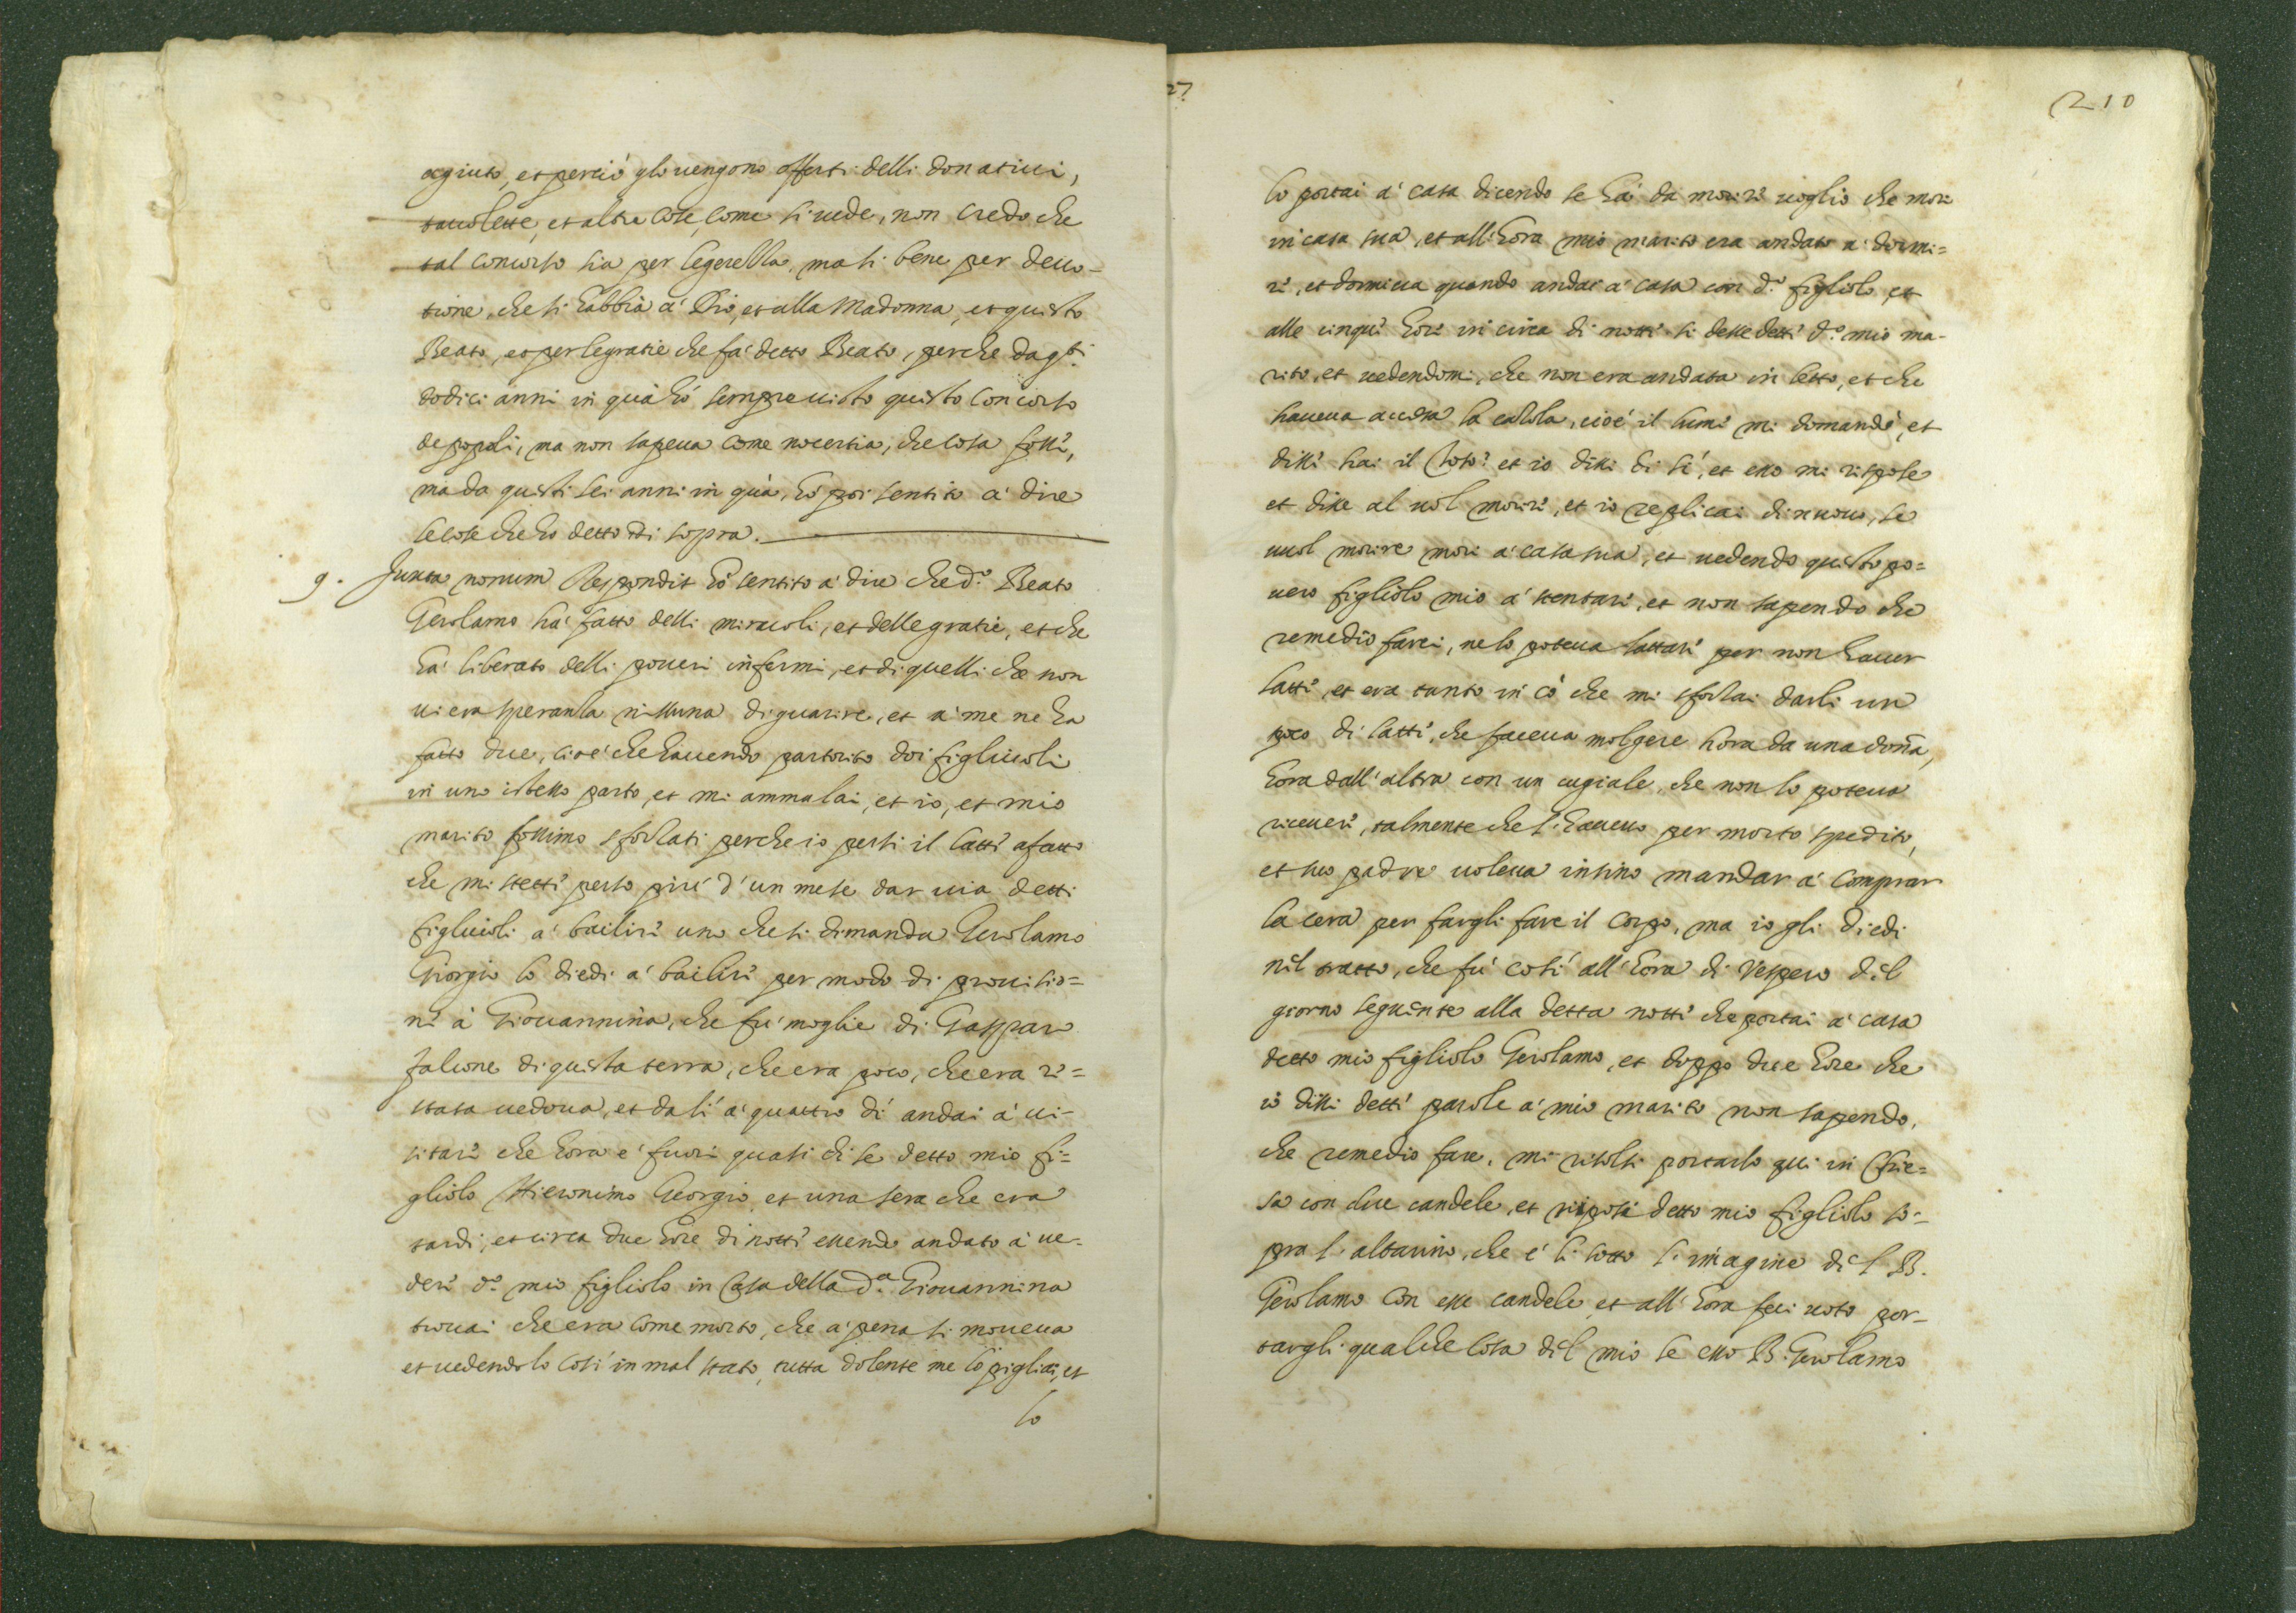 agiuto, et perciò glo uengono offerti delli donatiui,
tauolette, et altre cose, come si uede, non credo che
tal concorso sia per legerezza, ma si bene per deuo-
tione, che si habbia à Dio, et alla Madonna, et questo
Beato, et per le gratie che fà detto Beato, perche da q.sti
dodici anni in quà hò sempre uisto questo concorso
de popoli, ma non sapeua come nocertia, che cosa fossi,
ma da questi sei anni in quà, hò poi sentito à dire
le cose che ho detto di sopra.
9. Juxta nonum Respondit hò sentito à dire che d.o Beato
Gerolamo hà fatto delli miracoli, et delle gratie, et che
hà liberato delli poueri infermi, et di quelli che non
ui era speranza nissuna di guarire, et à me ne ha
fatto due, cioè che hauendo partorito doi figliuoli
in uno istesso parto, et mi ammalai, et io, et mio
marito fossimo sforzati perche io persi il latti afatto
che mi stetti perso più d'un mese dar uia detti
figliuoli à bailiri uno che si dimanda Gerolamo
Giorgio lo diedi à bailiri per modo di prouisio=
ni à Giouannina, che fù moglie di Gaspar
falcone di questa terra, che era poco, che era ri=
stata uedoua, et da lì à quattro dì andai à ui-
sitari che hora è fuori quasi di se detto mio fi=
gliolo Hieronimo Georgio, et una sera che era
tardi, et circa due hore di notti essendo andato à ue-
deri d.o mio figliolo in Casa della d.a Giouannina
trouai che era come morto, che à pena si moueua
et uedendolo così in mal stato, tutta dolente me lo pigliai, et
lo
27
210
lo portai à casa dicendo se hà da moriri uoglio che mori
in casa sua, et all'hora mio marito era andato à dormi=
ri, et dormiua quando andai à casa con d.o figliolo et
alle cinqui hori in circa di notti si dessedetti d.o mio ma-
rito, et uedendomi, che non era andata in letto, et che
haueua accesa la cazola, cioè il lumi mi domandò, et
dissi hai il Coso? et io dissi di sì, et esso mi rispose
et disse al uol moriri, et io replicai di nuouo, se
uuol morire mori à casa sua, et uedendo questo po=
uero figliolo mio à stentari, et non sapendo che
remedio farci, ne lo poteua lattari per non hauer
latti, et era tanto in cò che mi sforzai darli un
poco di latti, che faceua molgere hora da una doña,
hora dall'altra con un cugiale, che non lo poteua
riceueri, talmente che l'haueuo per morto spedito,
et suo padre uoleua insino mandar à comprar
la cera per fargli fare il corpo, ma io gli diedi
nil tratto, che fù così all'hora di Vespero dil
giorno seguente alla detta notti che portai à casa
detto mio figliolo Gerolamo, et doppo due hore che
io dissi detti parole à mio marito non sapendo,
che remedio fare, mi risolsi portarlo qui in Chie=
sa con due candele, et riposi detto mio figliolo so-
pra l'altarino, che è lì sotto l'imagine dil B.
Gerolamo con esse candele, et all'hora feci uoto por-
targli qualche cosa dil mio se esso B. Gerolamo